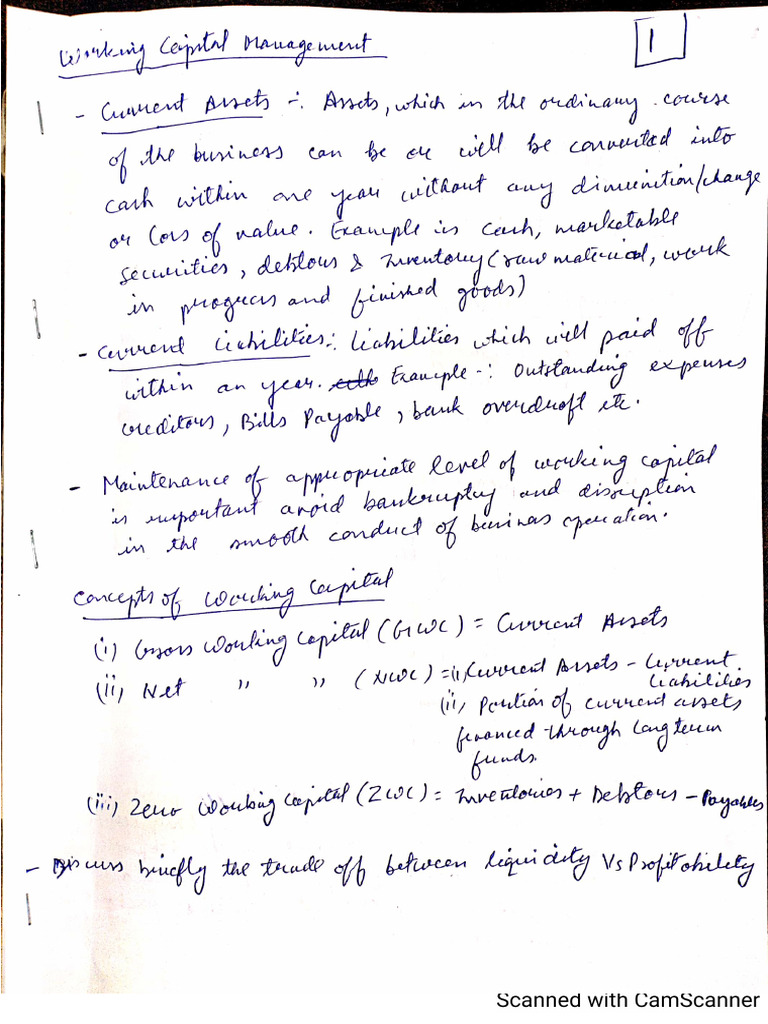 Working Capital Management
1
- Current Assets :- Assets, which in the ordinary course
of the business can be or will be converted into
cash within one year without any diminition/change
or loss of value. Example is cash, marketable
securities, debtors & Inventory (raw material, work
in progress and finished goods)
- Current Liabilities :- Liabilities which will paid off
within an year. Example -: Outstanding expenses
creditors, Bills Payable, bank overdraft etc.
- Maintenance of appropriate level of working capital
is important avoid bankruptcy and disruption
in the smooth conduct of business operation.
Concepts of Working Capital
(i) Gross Working Capital (GWC) = Current Assets
(ii) Net " " (NWC) = (i) Current Assets - Current
Liabilities
(ii) Portion of current assets
financed through long term
funds.
(iii) Zero Working Capital (ZWC) = Inventories + Debtors - Payables
- Discuss briefly the trade off between liquidity Vs Profitability
Scanned with CamScanner